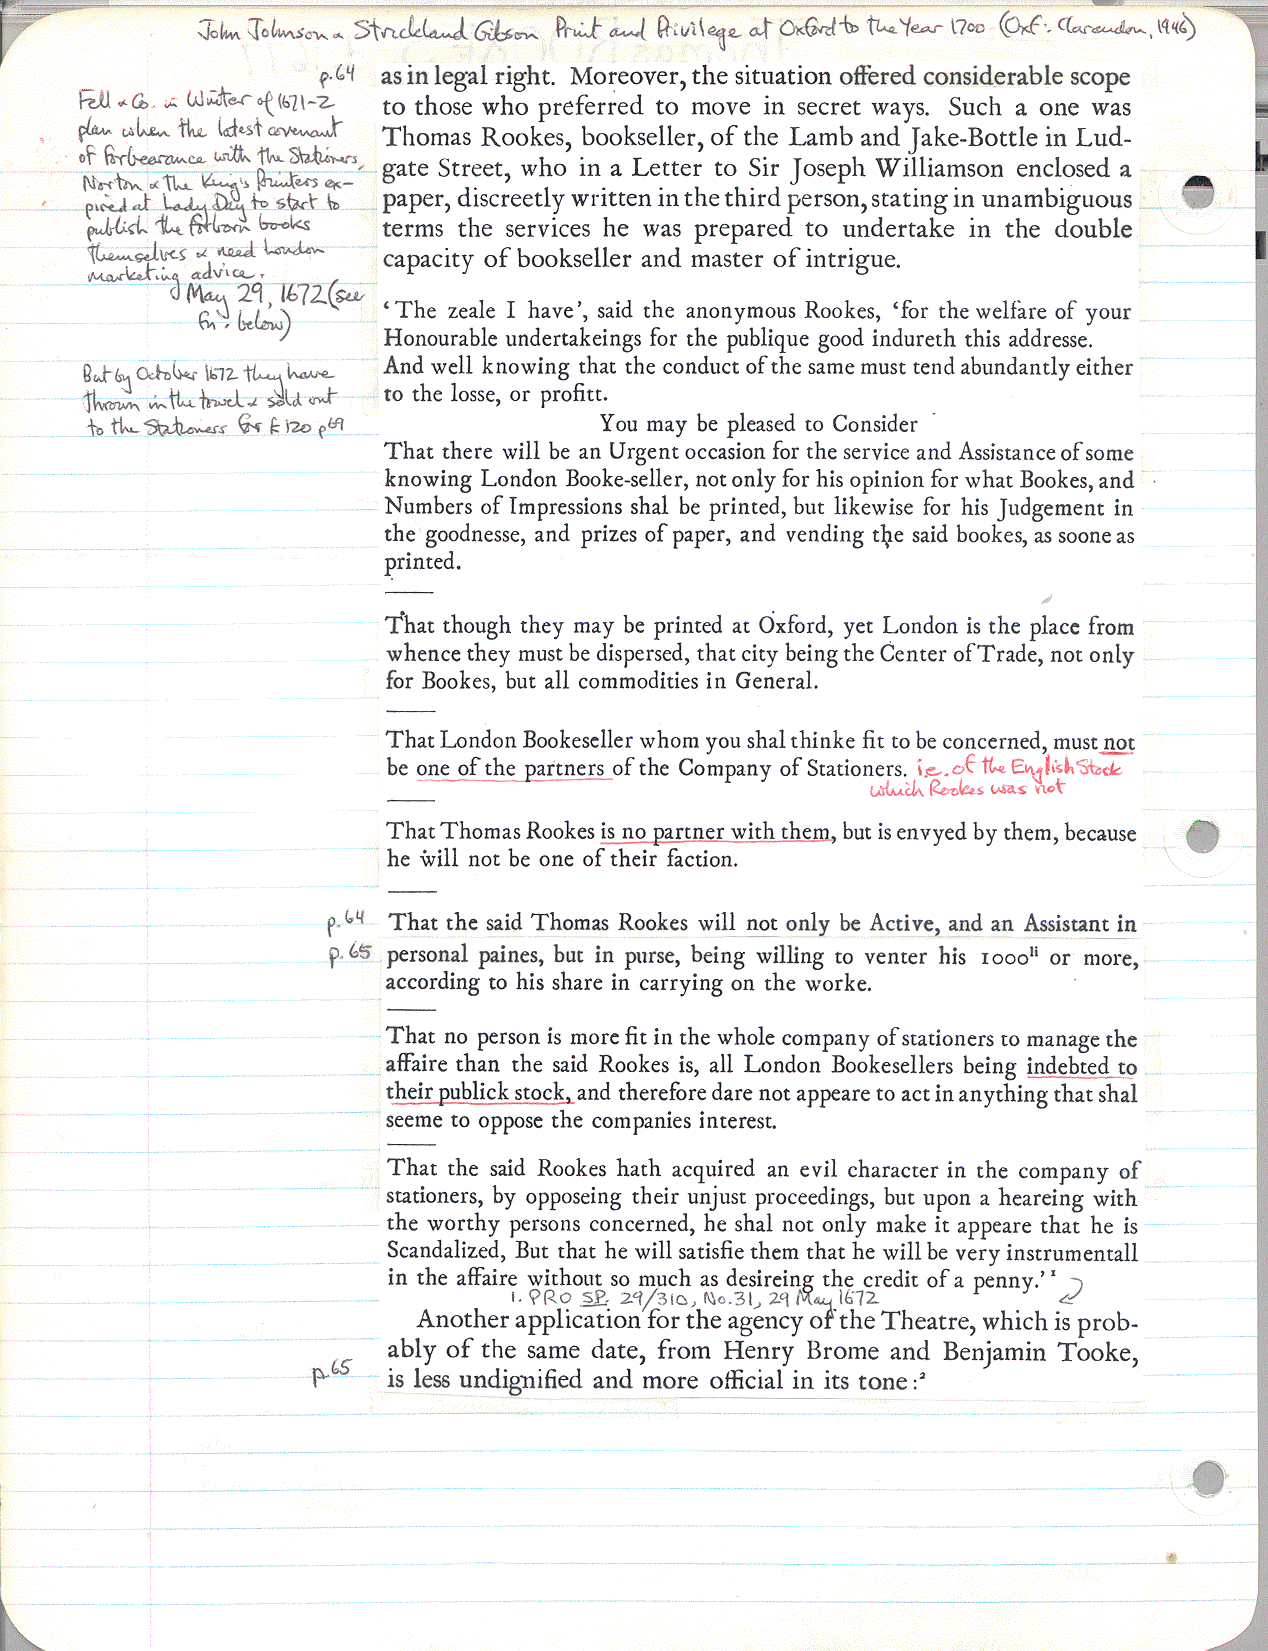 John Johnson & Strickland Gibson Print and Privilege at Oxford to the Year 1700 (Oxf: Clarendon, 1946)
p.64
Fell & Co. in Winter of 1671-2
plan when the latest covenant
of forbearance with the Stationers,
Norton & the King's Printers ex-
pired at Lady Day to start to
publish the forborn books
themselves & need London
marketing advice.
May 29, 1672 (see
fn. below)
But by October 1672 they have
thrown in the towel & sold out
to the Stationers for £120 p69
as in legal right. Moreover, the situation offered considerable scope
to those who preferred to move in secret ways. Such a one was
Thomas Rookes, bookseller, of the Lamb and Jake-Bottle in Lud-
gate Street, who in a Letter to Sir Joseph Williamson enclosed a
paper, discreetly written in the third person, stating in unambiguous
terms the services he was prepared to undertake in the double
capacity of bookseller and master of intrigue.
‘The zeale I have’, said the anonymous Rookes, ‘for the welfare of your
Honourable undertakeings for the publique good indureth this addresse.
And well knowing that the conduct of the same must tend abundantly either
to the losse, or profitt.
You may be pleased to Consider
That there will be an Urgent occasion for the service and Assistance of some
knowing London Booke-seller, not only for his opinion for what Bookes, and
Numbers of Impressions shal be printed, but likewise for his Judgement in
the goodnesse, and prizes of paper, and vending the said bookes, as soone as
printed.
That though they may be printed at Oxford, yet London is the place from
whence they must be dispersed, that city being the Center of Trade, not only
for Bookes, but all commodities in General.
That London Bookeseller whom you shal thinke fit to be concerned, must not
be one of the partners of the Company of Stationers. i.e. of the English Stock
which Rookes was not
That Thomas Rookes is no partner with them, but is envyed by them, because
he will not be one of their faction.
p.64 That the said Thomas Rookes will not only be Active, and an Assistant in
p.65 personal paines, but in purse, being willing to venter his 1000li or more,
according to his share in carrying on the worke.
That no person is more fit in the whole company of stationers to manage the
affaire than the said Rookes is, all London Bookesellers being indebted to
their publick stock, and therefore dare not appeare to act in anything that shal
seeme to oppose the companies interest.
That the said Rookes hath acquired an evil character in the company of
stationers, by opposeing their unjust proceedings, but upon a heareing with
the worthy persons concerned, he shal not only make it appeare that he is
Scandalized, But that he will satisfie them that he will be very instrumentall
in the affaire without so much as desireing the credit of a penny.’¹
1. PRO SP. 29/310, No.31, 29 May 1672
Another application for the agency of the Theatre, which is prob-
ably of the same date, from Henry Brome and Benjamin Tooke,
p.65 is less undignified and more official in its tone:²